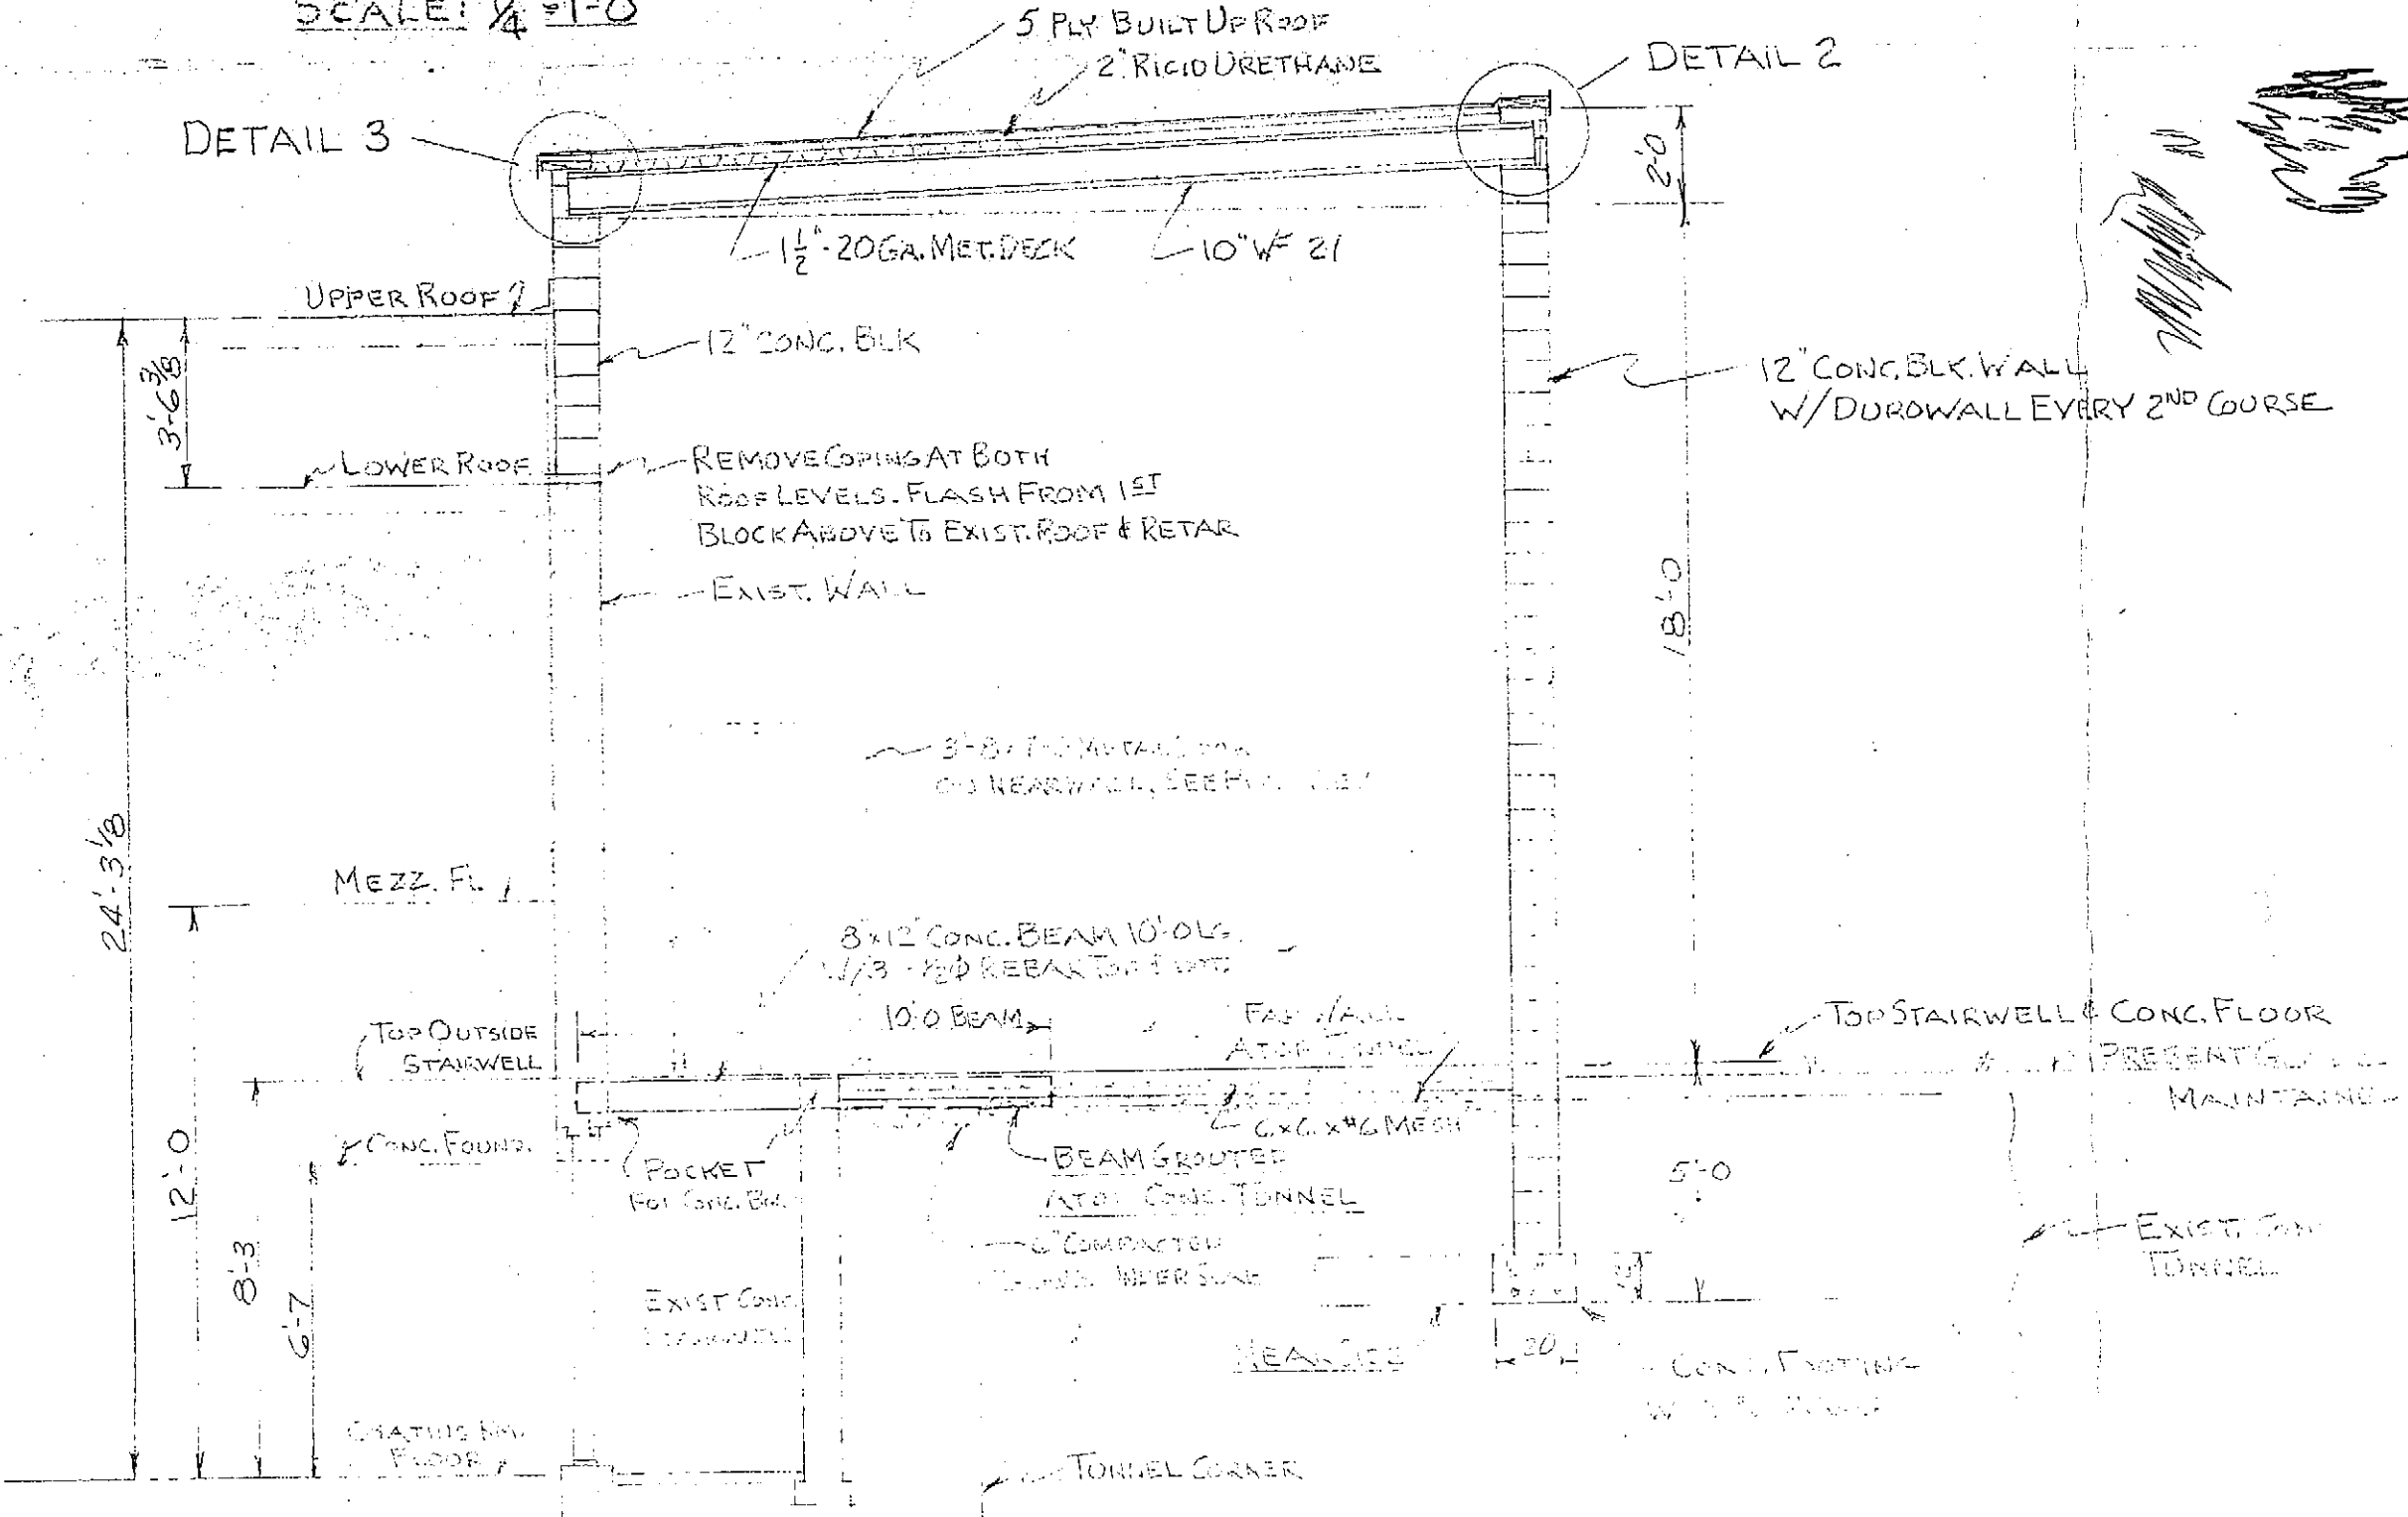 SCALE: 1/4 = 1-0
5 PLY BUILT UP ROOF
2" RIGID URETHANE
DETAIL 2
DETAIL 3
2'-0
1 1/2" - 20 GA. MET. DECK
10" WF 21
UPPER ROOF
12" CONC. BLK
3'-6 3/8
12" CONC. BLK. WALL
W/ DUROWALL EVERY 2ND COURSE
LOWER ROOF
REMOVE COPING AT BOTH
ROOF LEVELS. FLASH FROM 1ST
BLOCK ABOVE TO EXIST. ROOF & RETAR
EXIST. WALL
18'-0
3'-8 x 7-0 METAL
ON NEAR WALL, SEE
24'-3 1/8
MEZZ. FL.
8 x 12" CONC. BEAM 10'-0 LG.
W/3 - 1/2 Φ REBAR TOP &
10'-0 BEAM
FAR WALL
ATOP TUNNEL
TOP OUTSIDE
STAIRWELL
TOP STAIRWELL & CONC. FLOOR
PRESENT
MAINTAINED
6 x 6 x #6 MESH
CONC. FOUND.
12'-0
POCKET
FOR CONC. BM.
BEAM GROUTED
ATOP CONC. TUNNEL
5'-0
8'-3
6'-7
6" COMPACTED
UNDER SLAB
EXIST. CONC.
STAIRWELL
EXIST. CONC.
TUNNEL
NEAR SIDE
20
CONC. FOOTING
W
COATING RM.
FLOOR
TUNNEL CORNER